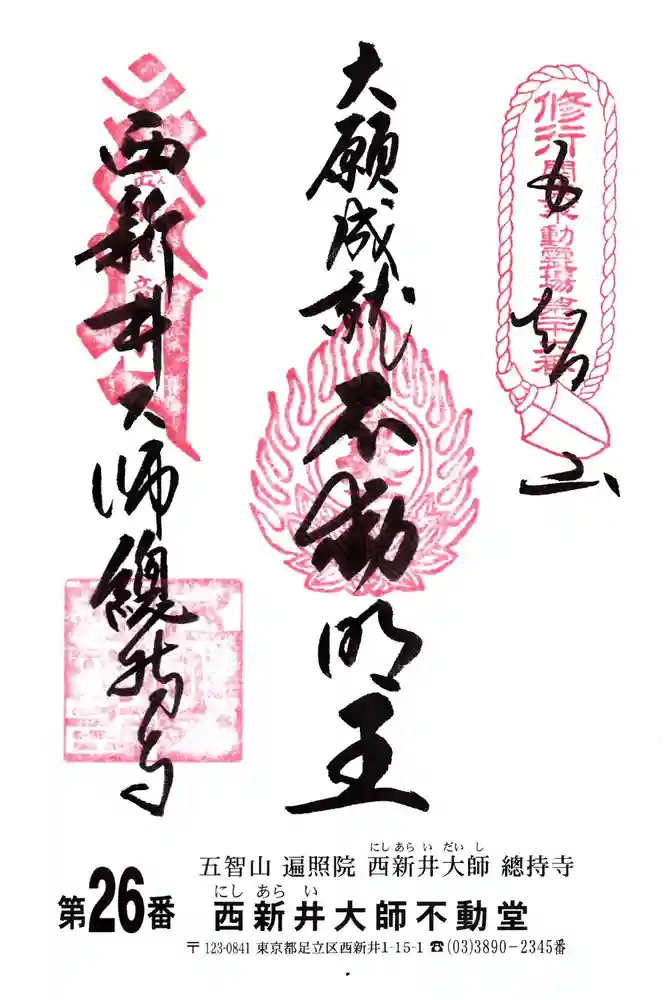 五智山
修行
大願成就不動明王
西新井大師總持寺
にしあらいだいし
五智山 遍照院 西新井大師 總持寺
第26番
にしあらい
西新井大師不動堂
〒123-0841 東京都足立区西新井1-15-1 ☎(03)3890-2345番